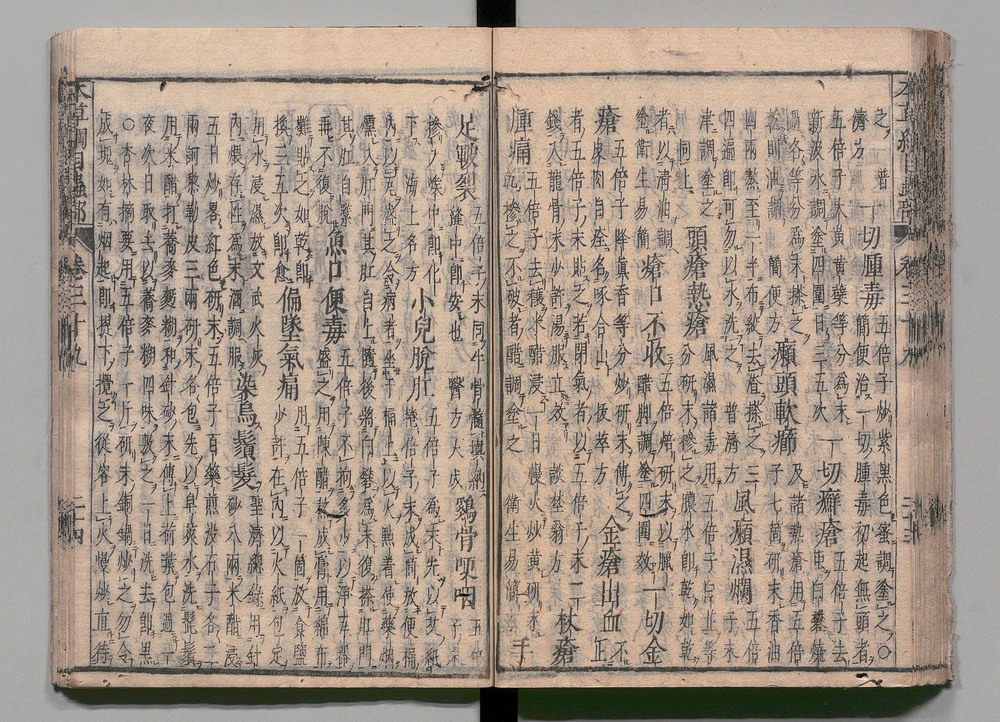 之普
濟方一切腫毒五倍子炒紫黑色蜜調塗之○
簡便治一切腫毒初起無頭者
五倍子大黃黃蘗等分爲末
新汲水調塗四圍日三五次一切癬瘡五倍子去
蟲白礬燒
過各等分爲末搽之
乾則油調簡便方癩頭軟癤及諸熱瘡用五倍
子七箇研末香油
四兩熬至一半布絞去渣搽之三
四遍即可勿以水洗之普濟方風癩濕爛五倍
子末
津調塗之
同上頭瘡熱瘡風濕諸毒用五倍子白芷等
分研末摻之膿水即乾如乾
者以清油調塗
衛生易簡瘡口不收五倍焙研末以臘
醋脚調塗四圍效一切金
瘡五倍子降眞香等分炒研末傅之
皮肉自全名啄合山拔萃方金瘡出血不
止
者五倍子末貼之若閉氣者以五倍子末二
錢入龍骨末少許湯服立效談埜翁方杖瘡
腫痛五倍子去穰米醋浸一日慢火炒黃研末
乾摻之不破者醋調塗之衛生易簡手
足皸裂五倍子末同牛骨髓塡納
縫中即安也醫方大成鷄骨哽咽五倍
子末
摻入喉中即化
海上名方小兒脫肛五倍子爲末先以艾絨
卷倍子末成筒放便桶
内以瓦盛之令病者坐于桶上以火點着使藥烟
熏入肛門其肛自上隨後將白礬爲末復搽肛門
其肛自緊
再不復脫魚口便毒五倍子不拘多少以淨瓦器
盛之用陳醋熬成膏用綿布
攤貼之如乾即
換三五次即愈偏墜氣痛用五倍子一箇放食鹽
少許在內以火紙包定
用水浸濕放文武火灰
內煨存性爲末酒調服染烏鬚髮聖濟總錄用針
砂八兩米醋浸
五日炒畧紅色研末五倍子百藥煎没石子各二
兩訶黎勒皮三兩研末各包先以皂莢水洗髭鬚
用米醋打蕎麥麪糊和針砂末傅上荷葉包過一
夜次日取去以蕎麥糊四味敷之一日洗去即黑
○杏林摘要用五倍子一斤研末銅鍋炒之勿令
成塊如有烟起即提下攪之從容上火慢炒直待
本草綱目蟲部
卷三十九
二十四